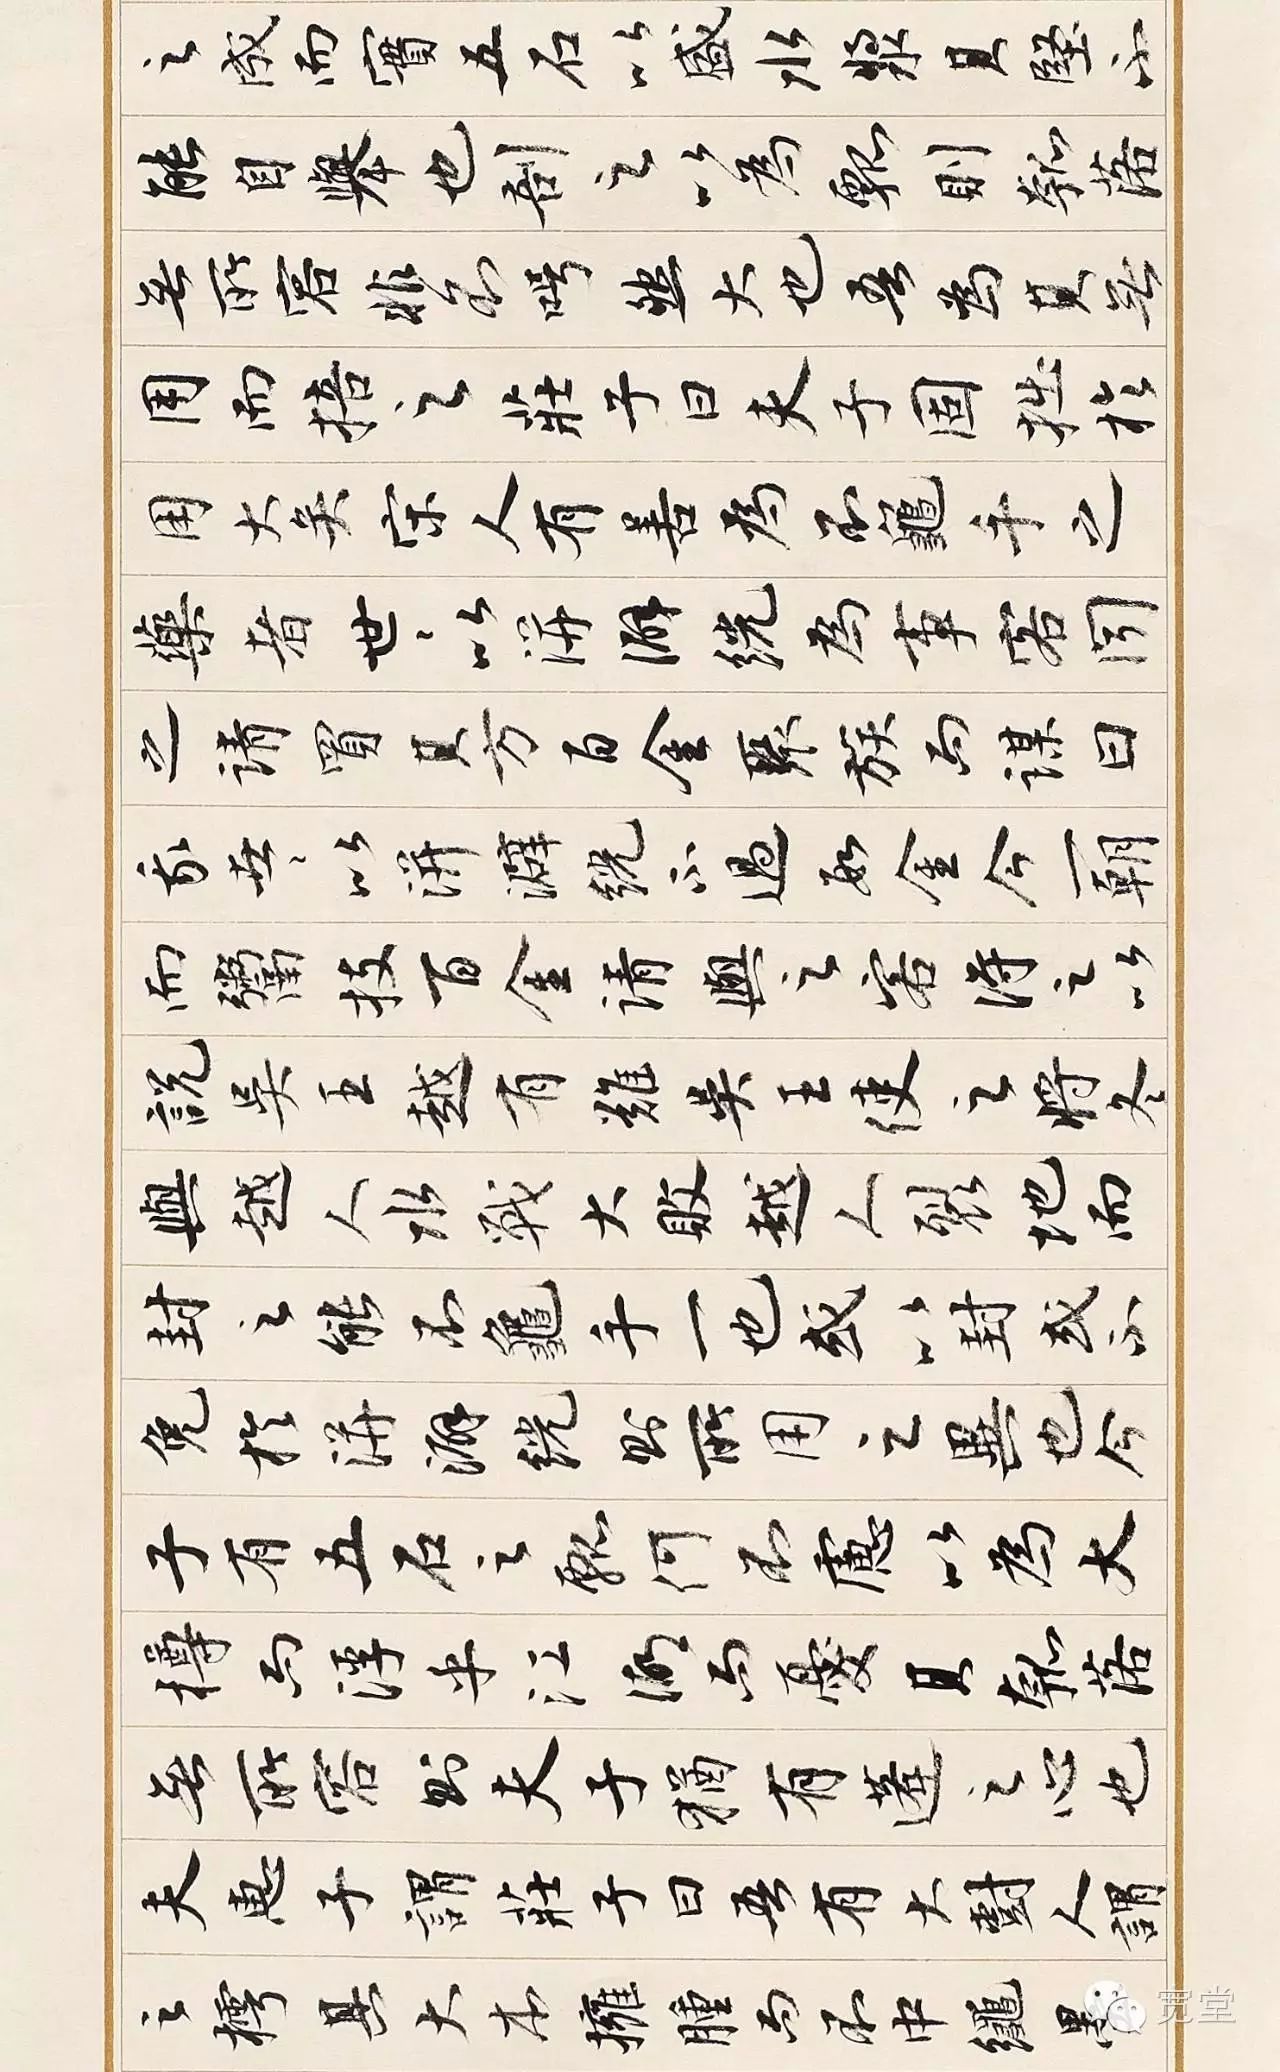 之成而實五石以盛水漿其堅不
能自舉也剖之以為瓢則瓠落
無所容非不呺然大也吾為其無
用而掊之莊子曰夫子固拙於
用大矣宋人有善為不龜手之
藥者世〻以洴澼絖為事客聞
之請買其方百金聚族而謀曰
我世〻以洴澼絖不過數金今一朝
而鬻技百金請與之客得之以
說吳王越有難吳王使之將冬
與越人水戰大敗越人裂地而
封之能不龜手一也或以封或不
免於洴澼絖則所用之異也今
子有五石之瓢何不慮以為大
樽而浮乎江湖而憂其瓠落
無所容則夫子猶有蓬之心也
夫惠子謂莊子曰吾有大樹人謂
之樗其大本擁腫而不中繩墨
宽堂